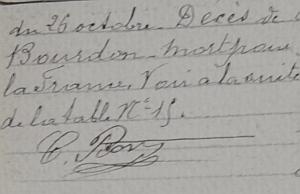 du 26 octobre. Décès de
Bourdon. mort pour
la France, Voir à la suite
de la table N° 15.